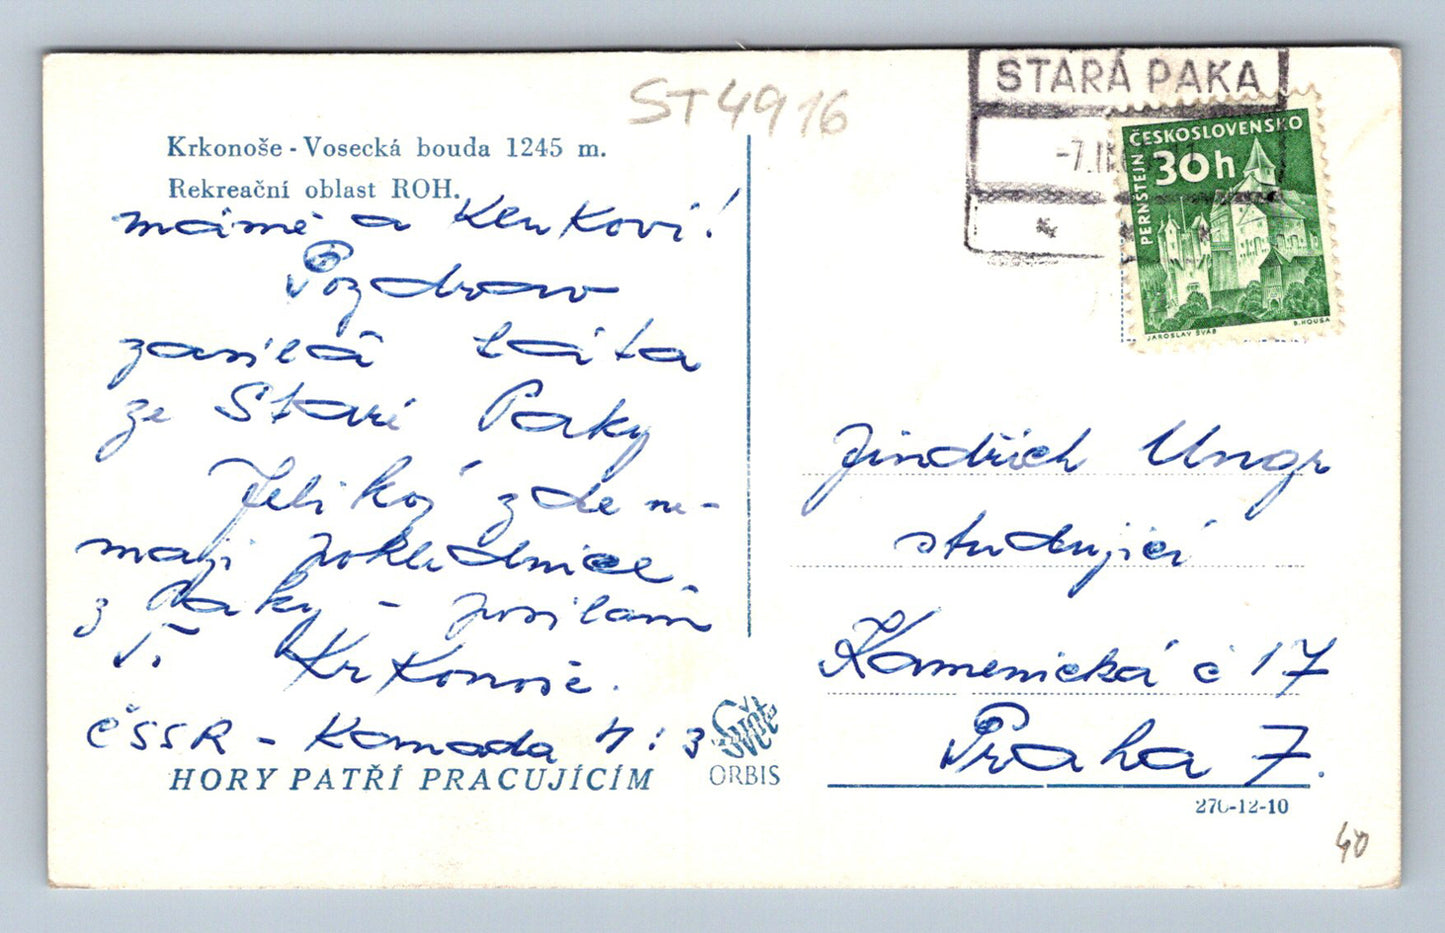 ST4916
Krkonoše - Vosecká bouda 1245 m.
Rekreační oblast ROH.
mámě a Lenkovi!
Pozdrav
zasílá táta
ze Staré Paky
Jelikož zde ne-
mají pohlednice
z Paky - posílám
T. Krkonoše.
ČSSR - Kanada 4:3
HORY PATŘÍ PRACUJÍCÍM
Svět
ORBIS
STARÁ PAKA
-7.IX
ČESKOSLOVENSKO
30h
PERNŠTEJN
JAROSLAV ŠVÁB
B. HOUSA
Jindřich Ungr
studující
Kamenická č 17
Praha 7.
276-12-10
40